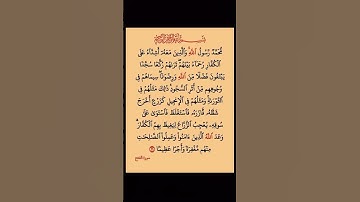 بِسْمِ ٱللَّهِ ٱلرَّحْمَٰنِ ٱلرَّحِيمِ
مُّحَمَّدٌ رَّسُولُ ٱللَّهِ وَٱلَّذِينَ مَعَهُۥٓ أَشِدَّآءُ عَلَى
ٱلْكُفَّارِ رُحَمَآءُ بَيْنَهُمْ تَرَىٰهُمْ رُكَّعًا سُجَّدًا
يَبْتَغُونَ فَضْلًا مِّنَ ٱللَّهِ وَرِضْوَٰنًا سِيمَاهُمْ فِى
وُجُوهِهِم مِّنْ أَثَرِ ٱلسُّجُودِ ذَٰلِكَ مَثَلُهُمْ فِى
ٱلتَّوْرَىٰةِ وَمَثَلُهُمْ فِى ٱلْإِنجِيلِ كَزَرْعٍ أَخْرَجَ
شَطْـَٔهُۥ فَـَٔازَرَهُۥ فَٱسْتَغْلَظَ فَٱسْتَوَىٰ عَلَىٰ
سُوقِهِۦ يُعْجِبُ ٱلزُّرَّاعَ لِيَغِيظَ بِهِمُ ٱلْكُفَّارَ
وَعَدَ ٱللَّهُ ٱلَّذِينَ ءَامَنُوا۟ وَعَمِلُوا۟ ٱلصَّٰلِحَٰتِ
مِنْهُم مَّغْفِرَةً وَأَجْرًا عَظِيمًۢا ٢٩
سورة الفتح